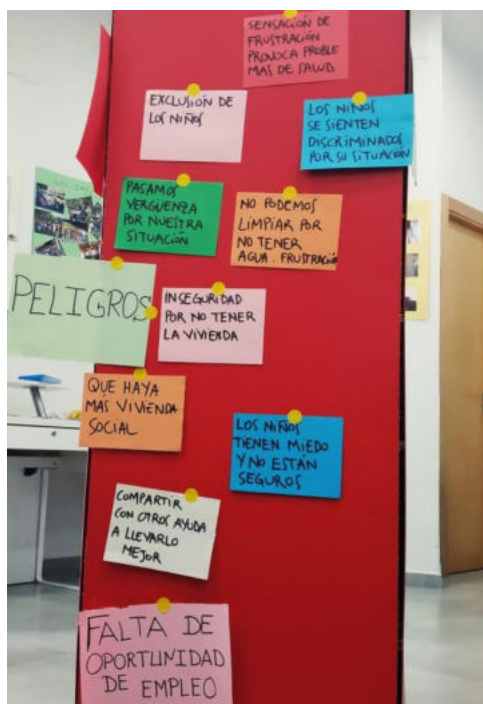 SENSACIÓN DE
FRUSTRACIÓN
PROVOCA PROBLE
MAS DE SALUD
EXCLUSIÓN DE
LOS NIÑOS
LOS NIÑOS
SE SIENTEN
DISCRIMINADOS
POR SU SITUACIÓN
PASAMOS
VERGÜENZA
POR NUESTRA
SITUACIÓN
NO PODEMOS
LIMPIAR POR
NO TENER
AGUA. FRUSTRACIÓN
PELIGROS
INSEGURIDAD
POR NO TENER
LA VIVIENDA
QUE HAYA
MAS VIVIENDA
SOCIAL
LOS NIÑOS
TIENEN MIEDO
Y NO ESTÁN
SEGUROS
COMPARTIR
CON OTROS AYUDA
A LLEVARLO
MEJOR
FALTA DE
OPORTUNIDAD
DE EMPLEO